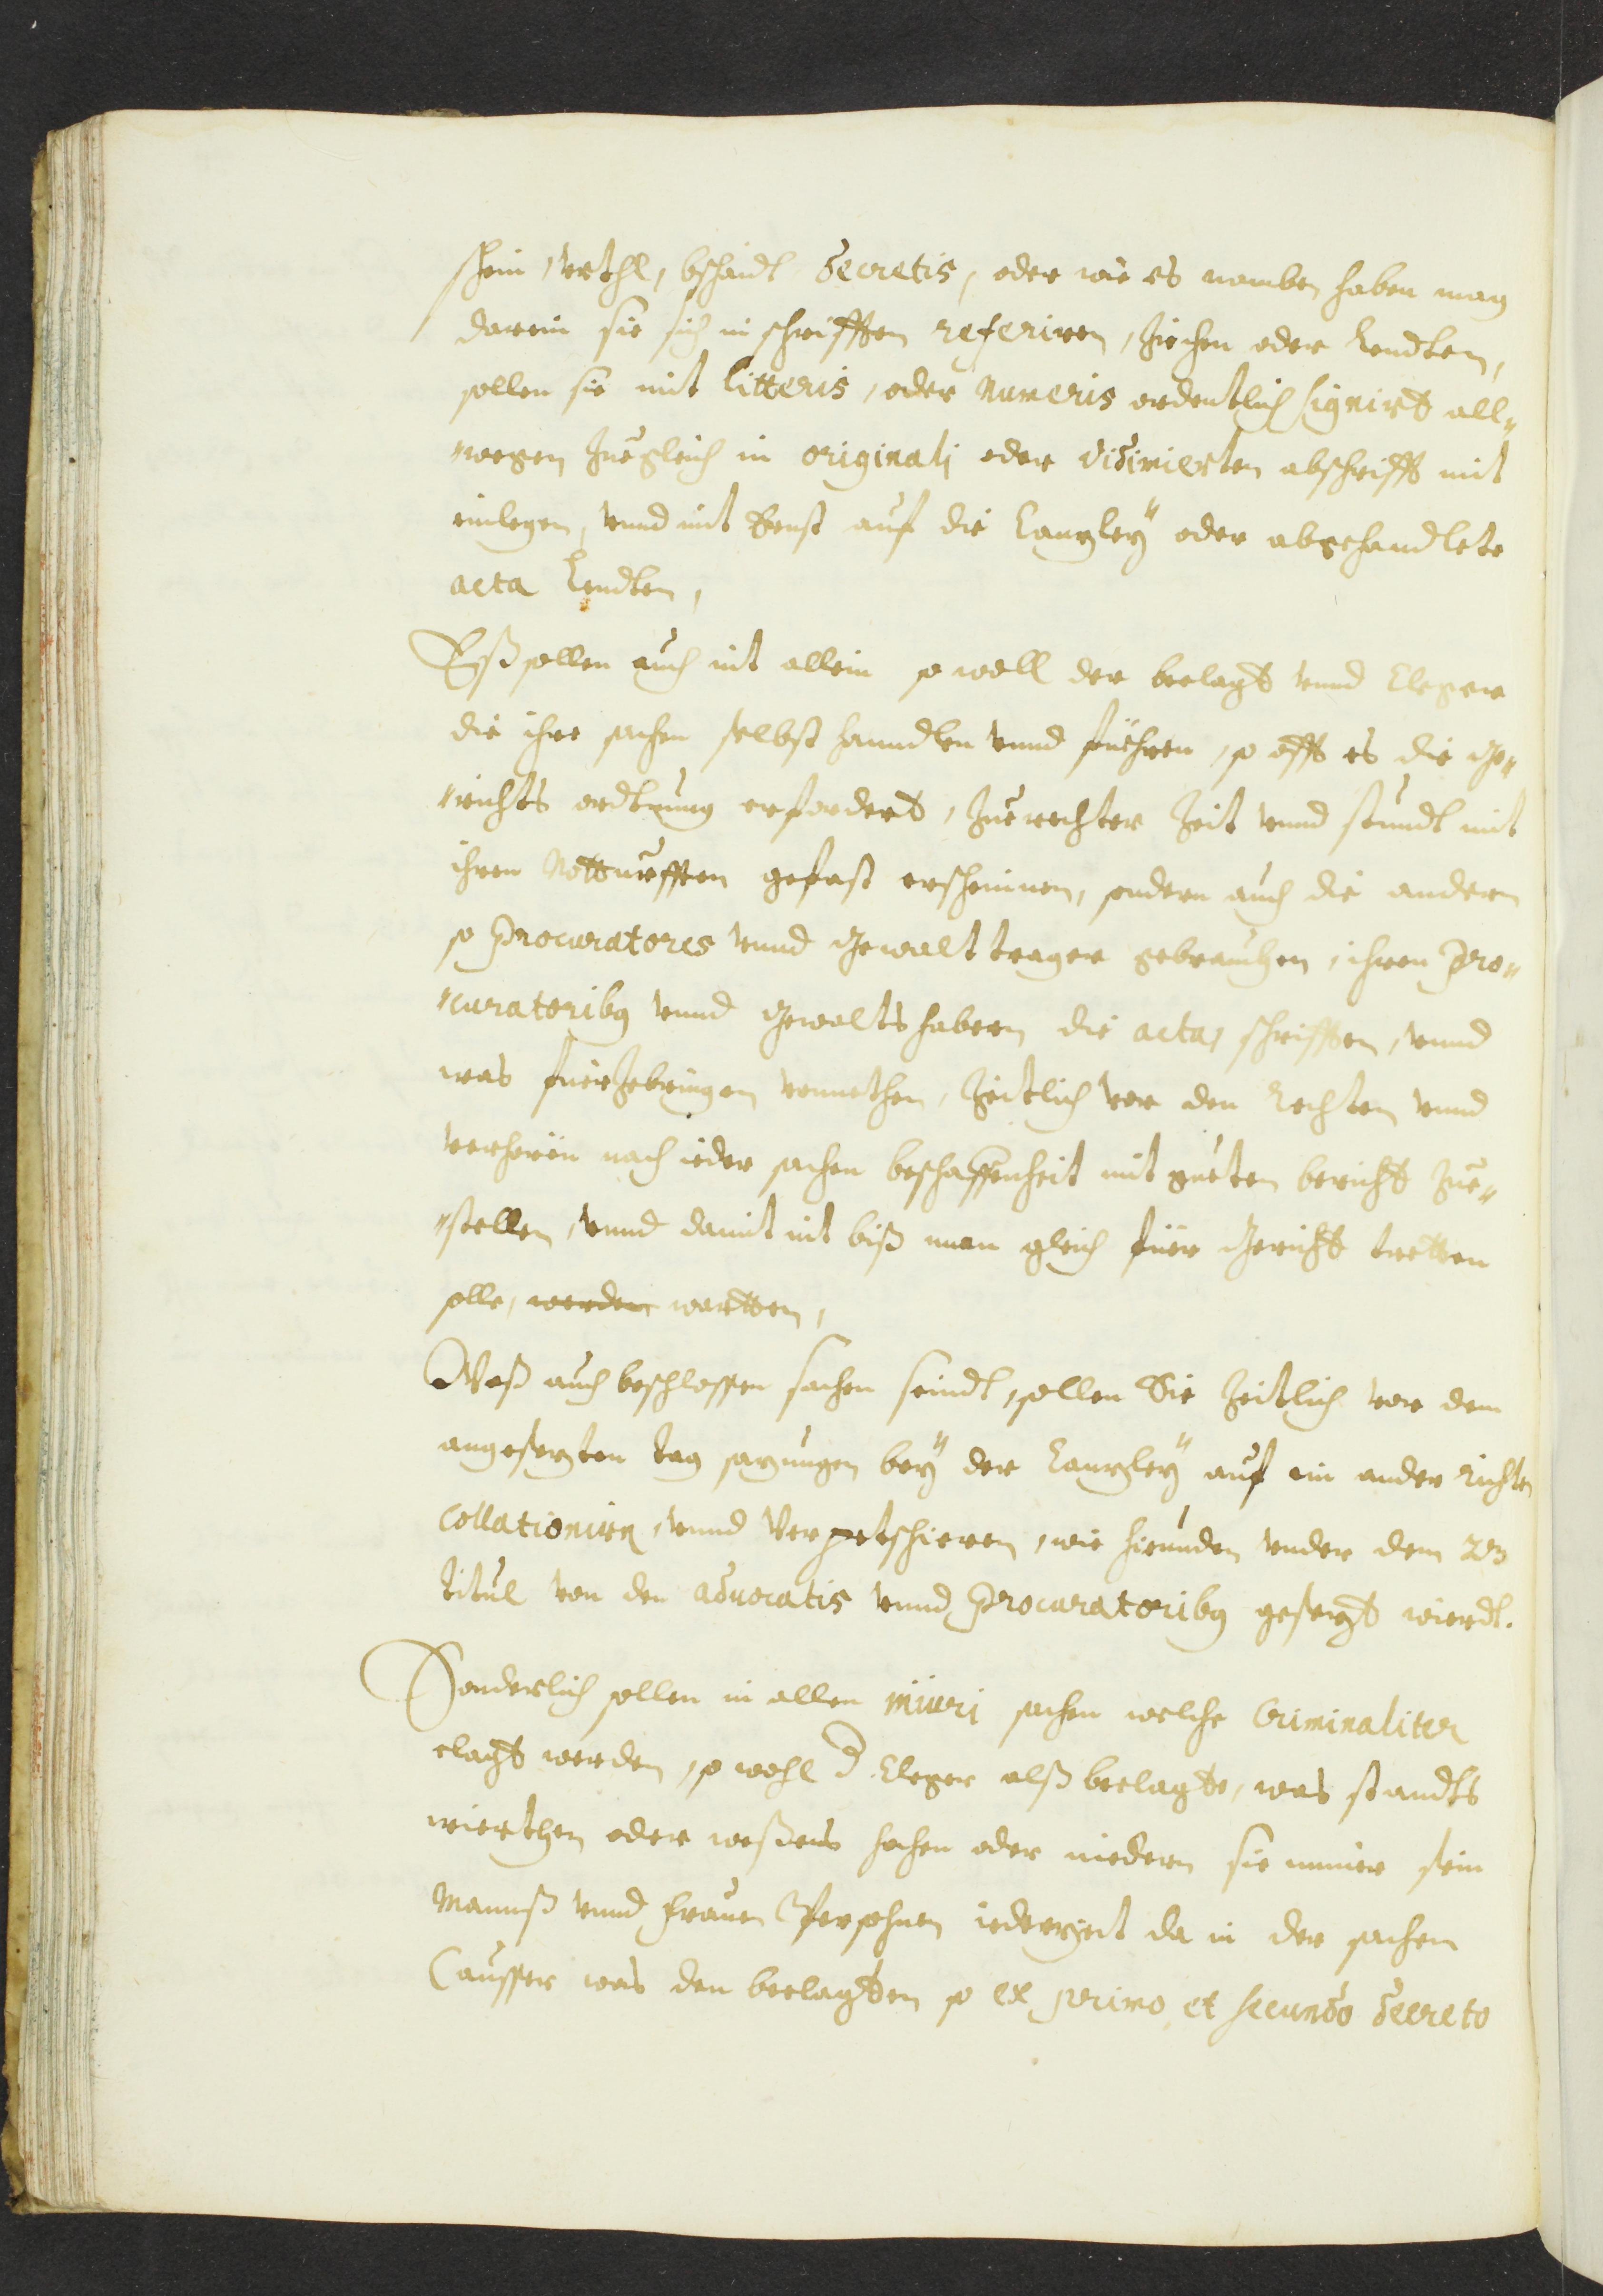 schein, urthl, bschaidt decretis, oder wie es namben haben mag
darein sie sich in schrifften referiren, ziechen oder lendten,
sollen sie mit litteris, oder numeris ordentlich signirt all„
„wegen zuegleich in originalj oder vidimierten abschrifft mit
einlegen, vnnd nit Sonst auf die Canzleÿ oder abgehandlete
acta lendten,
Eß sollen auch nit allein so woll der beclagt vnnd Cleger
die ihre sachen selbst hanndlen vnnd füehren, so offt es die Ge„
„richts ordtnung erfordert, zue rechter Zeit vnnd stundt mit
ihren Notturfften gefast erscheinnen, sondern auch die andern
so Procuratores vnnd Gewalttrager gebrauchen, ihren Pro„
„curatoribus vnnd Gewaltshabern die acta, schrifften, vnnd
was fürzebringen vonnethen, Zeitlich vor den Rechten vnnd
verhören nach ieder sachen beschaffenheit mit gueten bericht zue„
„stellen, vnnd damit nit biß man gleich füer Gericht tretten
solle, werden wartten,
Waß auch beschlossen sachen seindt, sollen Sie Zeitlich vor dem
angesezten tag sazungen beÿ der Canzleÿ auf ein ander richten
collationirn, vnnd Verpetschieren, wie hierunden vnder dem 23
titul von den advocatis vnnd Procuratoribus gesezt wierdt.
Sonderlich sollen in allen iniurj sachen welche Criminaliter
clagt werden, so wohl d. Cleger alß beclagte, was standts
wierthen oder weßens hochen oder nidern sie immer sein
Mannß vnnd frauen Persohnen iederzeit da in der sachen
(ausser was den beclagten so ex primo et secundo decreto